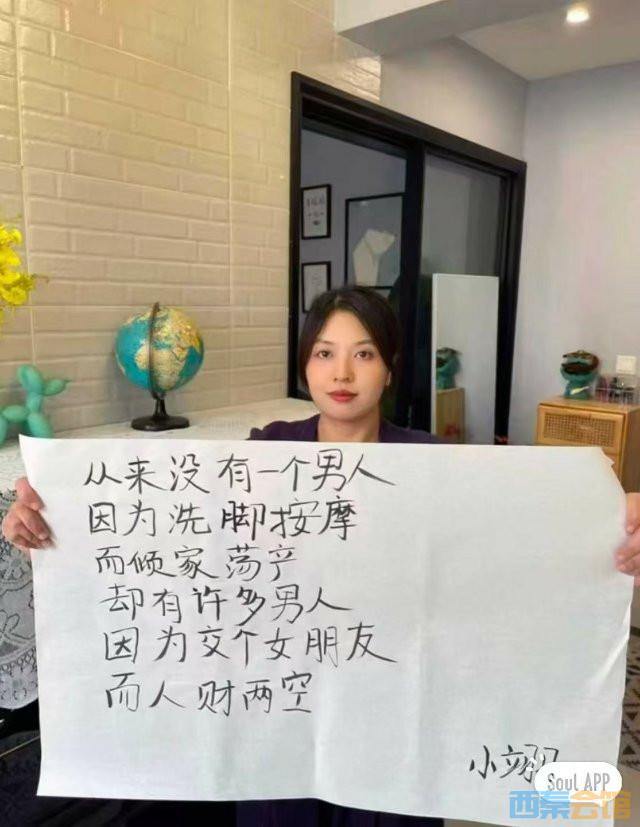 从来没有一个男人
因为洗脚按摩
而倾家荡产
却有许多男人
因为交个女朋友
而人财两空
小翊
Soul APP
西秦会馆